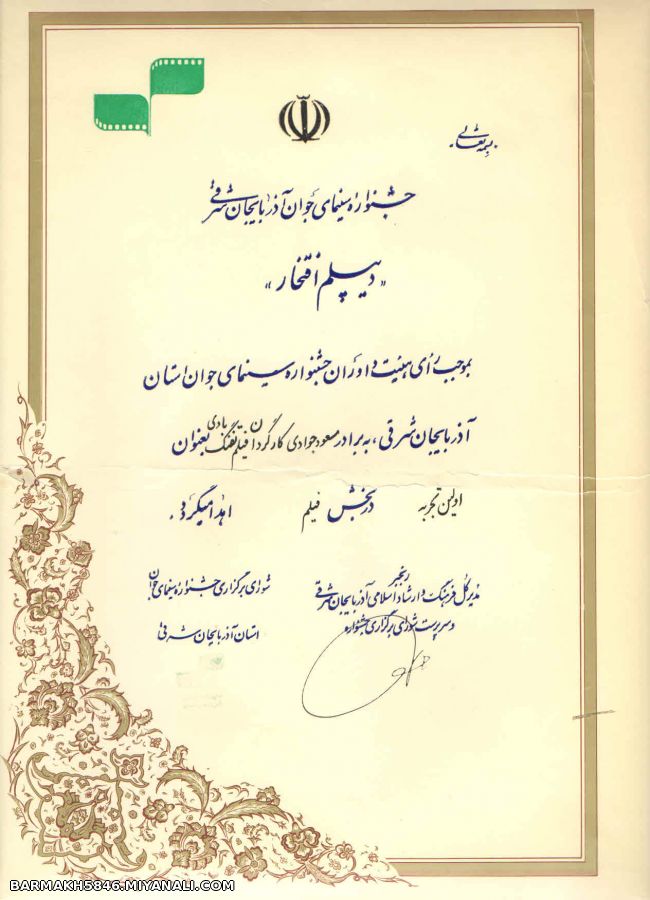 بسمه تعالی
جشنواره سینمای جوان آذربایجان شرقی
«دیپلم افتخار»
بموجب رأی هیئیت داوران جشنواره سینمای جوان استان
آذربایجان شرقی، به برادر مسعود جوادی کارگردان فیلم تفنگ بادی بعنوان
اولین تجربه در بخش فیلم اهدا میگردد.
رنجبر
مدیر کل فرهنگ و ارشاد اسلامی آذربایجان شرقی
و سرپرست شورای برگزاری جشنواره
شورای برگزاری جشنواره سینمای جوان
استان آذربایجان شرقی
BARMAKH5846.MIYANALI.COM